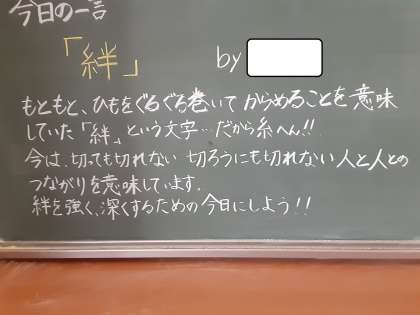 今日の一言
「絆」 by
もともと、ひもをぐるぐる巻いてからめることを意味
していた「絆」という文字…だから糸へん!!
今は、切っても切れない 切ろうにも切れない人と人との
つながりを意味しています.
絆を強く、深くするための今日にしよう!!